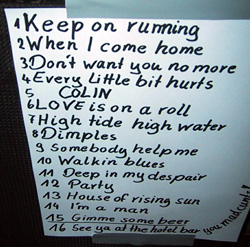 1 Keep on running
2 When I come home
3 Don't want you no more
4 Every little bit hurts
5 COLIN
6 LOVE is on a roll
7 High tide high water
8 Dimples
9 Somebody help me
10 Walkin blues
11 Deep in my despair
12 Party
13 House of rising sun
14 I'm a man
15 Gimme some beer
16 See ya at the hotel bar you mad